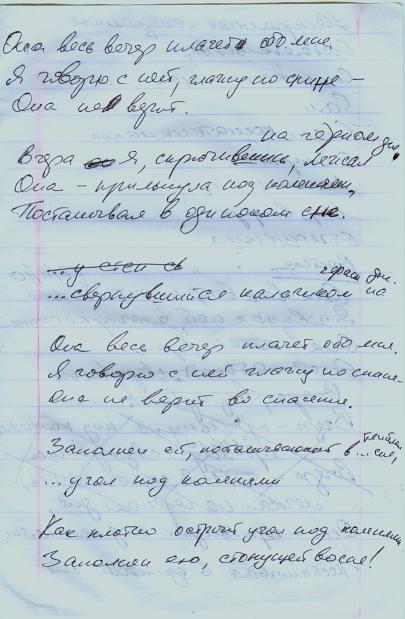 Она весь вечер плачет обо мне.
Я говорю с ней, глажу по спине –
Она не верит.
на чёрном дне,
Вчера я, скрючившись, лежал
Она – прильнула под коленям,
Постанывая в одиноком сне.
...у стен
черн. дне.
...свернувшийся калачиком на
Она весь вечер плачет обо мне.
Я говорю с ней глажу по спине
Она не верит во спасение.
Заполнен ей, постанывающей в ... сне,
... угол под коленями
Как плотно острый угол под коленями
Заполнен ею, стонущей во сне!